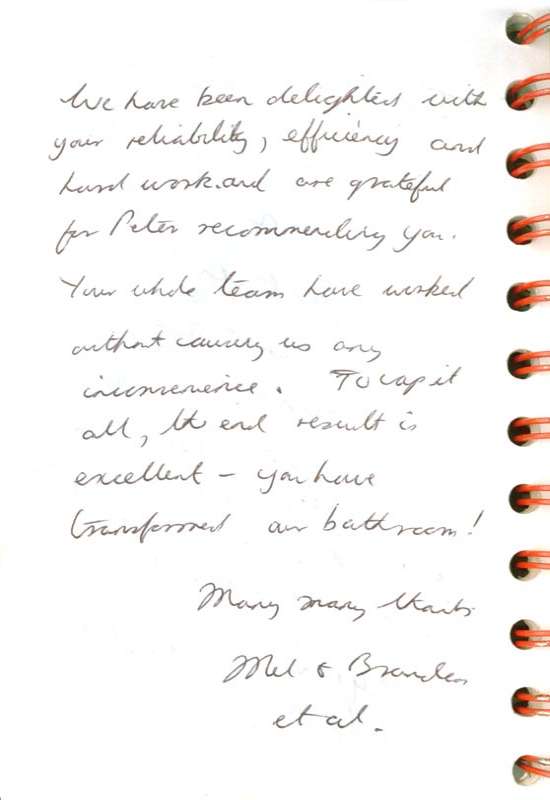 We have been delighted with
your reliability, efficiency and
hard work.and are grateful
for Peter recommending you.
Your whole team have worked
without causing us any
inconvenience. To cap it
all, the end result is
excellent – you have
transformed our bathroom!
Many many thanks
Mel &
et al.